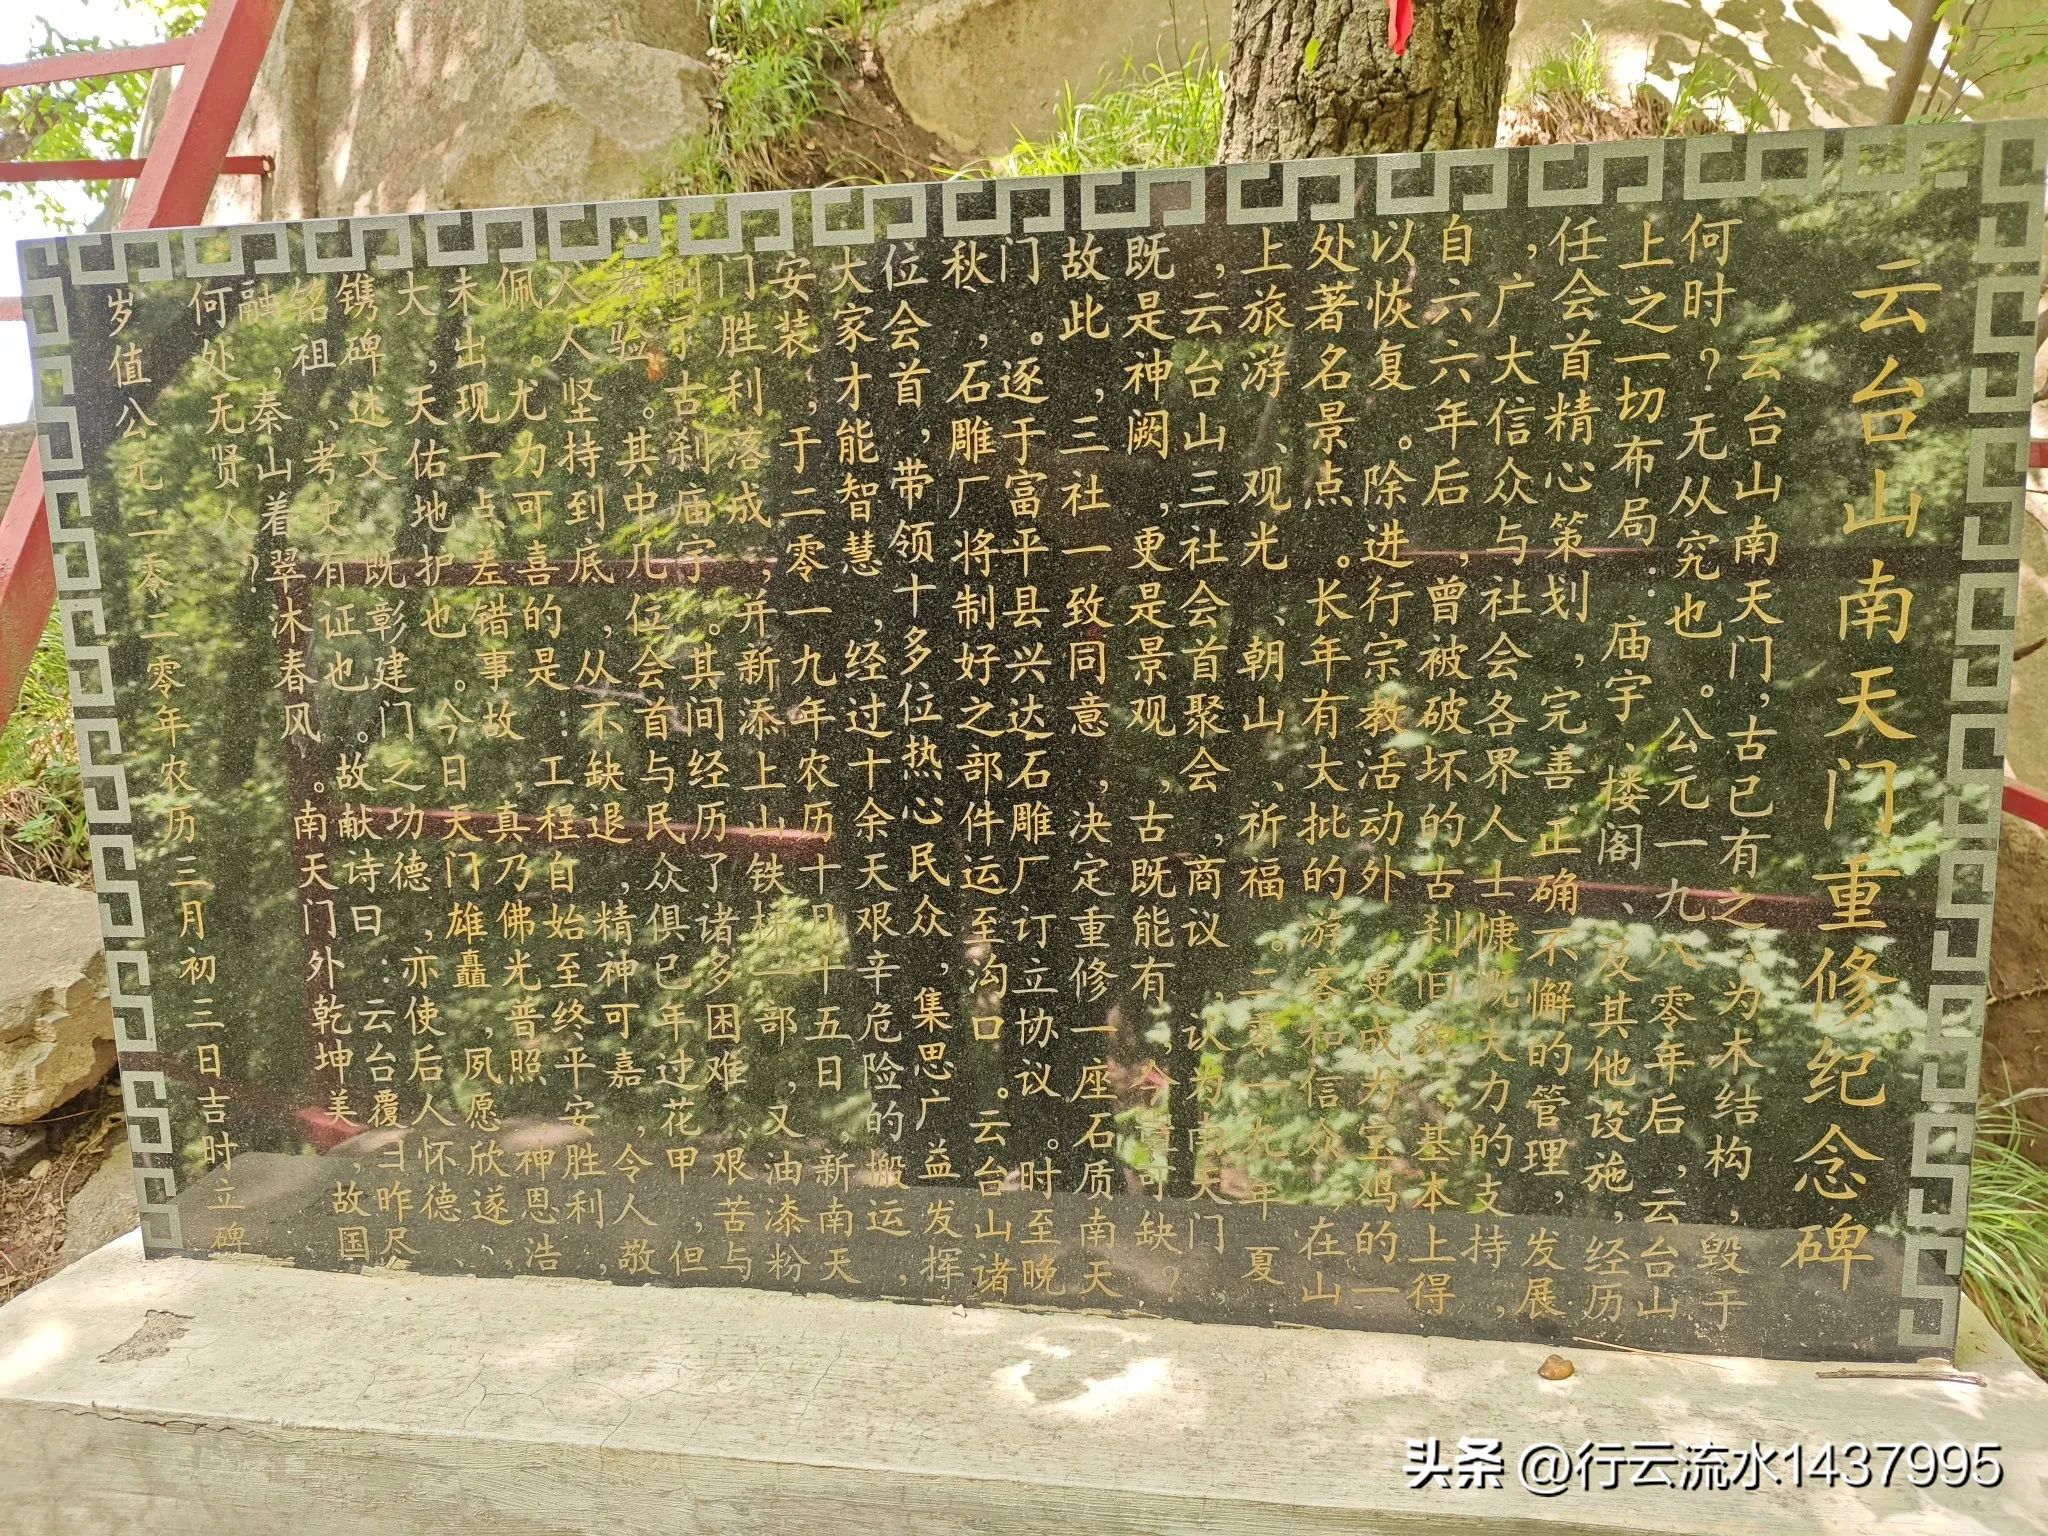 云台山南天门重修纪念碑
云台山南天门，古已有之。为木结构，毁于
何时？无从究也。公元一九八零年后，云台山
上之一切布局：庙宇、楼阁、及其他设施，经历
任会首精心策划，完善，正确不懈的管理，发展
，广大信众与社会各界人士慷慨大力的支持，
自六六年后，曾被破坏的古刹旧貌，基本上得
以恢复。除进行宗教活动外，更成为宝鸡的一
处著名景点。长年有大批的游客和信众，在山
上旅游、观光、朝山、祈福。二零一九年夏
，云台山三社会首聚会，商议，认为南天门，
既是神阙，更是景观，古既能有，今可缺？
故此，三社一致同意，决定重修一座石质南天
门。逐于富平县兴达石雕厂订立协议。时至晚
秋，石雕厂将制好之部件运至沟口。云台山诸
位会首，带领十多位热心民众，集思广益发挥
大家才能智慧，经过十余天艰辛危险的搬运，
安装，于二零一九年农历十月十五日，新南天
门胜利落成，并新添上山铁梯一部，又油漆粉
刷了古刹庙宇。其间经历了诸多困难，艰苦与
考验。其中几位会首与民众俱已年过花甲，但
人人坚持到底，从不缺退，精神可嘉，令人敬
佩。尤为可喜的是：工程自始至终平安胜利，
未出现一点差错事故，真乃佛光普照，神恩浩
大，天佑地护也。今日天门雄矗，夙愿欣遂，
镌碑述文，既彰建门之功德，亦使后人怀德、
铭祖、考史有证也。故献诗曰：云台覆彐昨尽
融，秦山着翠沐春风。南天门外乾坤美，故国
何处无贤人？
岁值公元二零二零年农历三月初三日吉时立碑
头条 @行云流水1437995